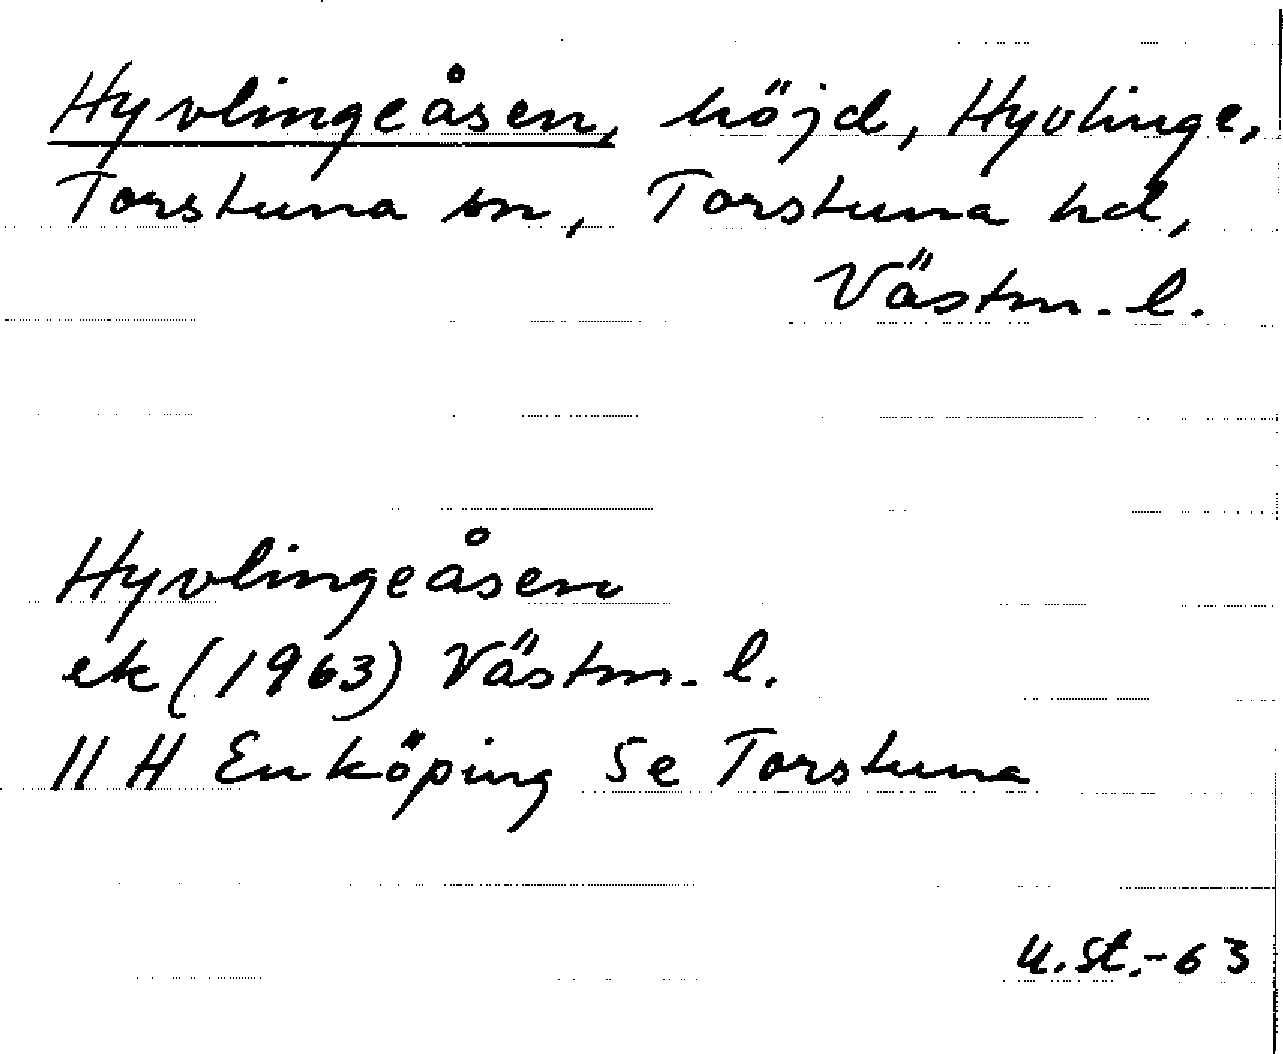 Hyvlingeåsen, höjd, Hyvlinge,
Torstuna sn, Torstuna hd,
Västm. l.
Hyvlingeåsen
ek (1963) Västm. l.
11 H Enköping 5e Torstuna
U.St.-63